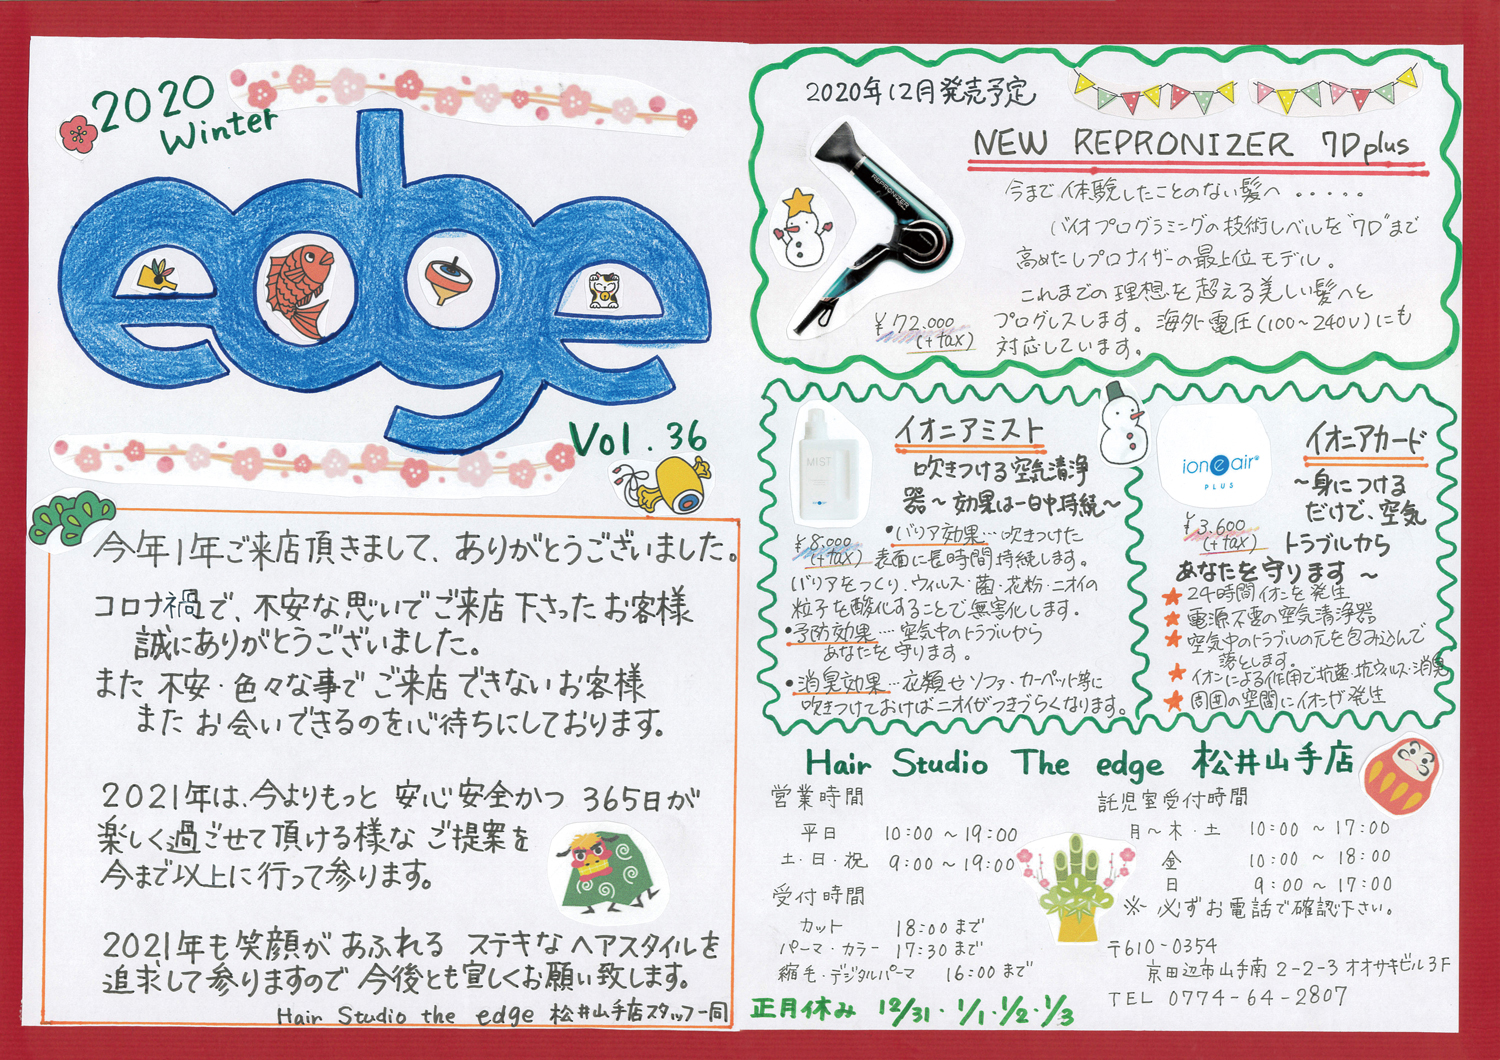 2020
Winter
edge
Vol.36
今年1年ご来店頂きまして、ありがとうございました。
コロナ禍で、不安な思いでご来店下さったお客様
誠にありがとうございました。
また不安・色々な事でご来店できないお客様
またお会いできるのを心待ちにしております。
2021年は、今よりもっと安心安全かつ365日が
楽しく過ごせて頂ける様なご提案を
今まで以上に行って参ります。
2021年も笑顔があふれるステキなヘアスタイルを
追求して参りますので今後とも宜しくお願い致します。
Hair Studio the edge 松井山手店スタッフ一同
2020年12月発売予定
NEW REPRONIZER 7D plus
今まで体験したことのない髪へ・・・・・
バイオプログラミングの技術レベルを"7D"まで
高めたレプロナイザーの最上位モデル。
これまでの理想を超える美しい髪へと
プログレスします。海外電圧(100~240V)にも
対応しています。
REPRONIZER
¥72.000
(+tax)
イオニアミスト
吹きつける空気清浄
器~効果は一日中持続~
MiST
¥8.000
(+tax)
•バリア効果…吹きつけた
表面に長時間持続します。
バリアをつくり、ウィルス・菌・花粉・ニオイの
粒子を酸化することで無害化します。
•予防効果…空気中のトラブルから
あなたを守ります。
•消臭効果…衣類やソファ・カーペット等に
吹きつけておけばニオイがつきづらくなります。
イオニアカード
~身につける
だけで、空気
トラブルから
あなたを守ります~
ion e air®
PLUS
¥3,600
(+tax)
★24時間イオンを発生
★電源不要の空気清浄器
★空気中のトラブルの元を包み込んで
落とします。
★イオンによる作用で抗菌・抗ウィルス・消臭
★周囲の空間にイオンが発生
Hair Studio The edge 松井山手店
営業時間
平日 10:00~19:00
土・日・祝 9:00~19:00
受付時間
カット 18:00まで
パーマ・カラー 17:30まで
縮毛・デジタルパーマ 16:00まで
正月休み 12/31・1/1・1/2・1/3
託児室受付時間
月~木・土 10:00~17:00
金 10:00~18:00
日 9:00~17:00
※必ずお電話で確認下さい。
〒610-0354
京田辺市山手南2-2-3オオサキビル3F
TEL 0774-64-2807